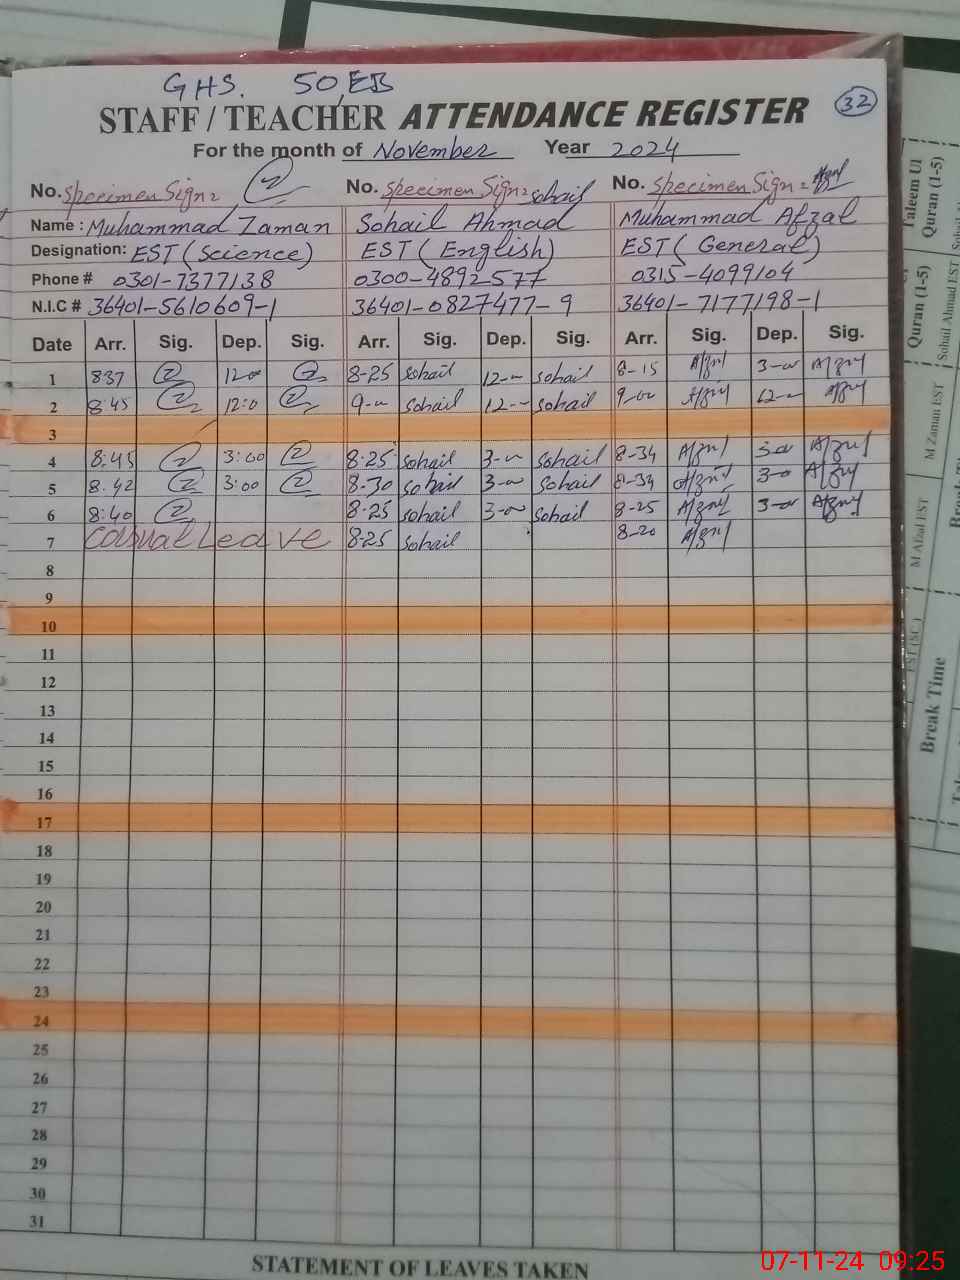 GHS. 50,EB
STAFF / TEACHER ATTENDANCE REGISTER 32
For the month of November Year 2024
No. Specimen Sign= No. Specimen Sign= Sohail No. Specimen Sign= Afzal
Name : Muhammad Zaman Sohail Ahmad Muhammad Afzal
Designation: EST (Science) EST (English) EST (General)
Phone # 0301-7377138 0300-4892577 0315-4099104
N.I.C # 36401-5610609-1 36401-0827477-9 36401-7177198-1
Date Arr. Sig. Dep. Sig. Arr. Sig. Dep. Sig. Arr. Sig. Dep. Sig.
1 837 12-00 8-25 Sohail 12-00 Sohail 8-15 Afzal 3-00 Afzal
2 8:45 12:0 9-00 Sohail 12-- Sohail 9-00 Afzal 12-- Afzal
3
4 8:45 3:00 8:25 Sohail 3-00 Sohail 8-34 Afzal 3-00 Afzal
5 8.42 3:00 8-30 Sohail 3-00 Sohail 8-34 Afzal 3-0 Afzal
6 8:40 8:25 Sohail 3-00 Sohail 8-25 Afzal 3-00 Afzal
7 Leave 8:25 Sohail 8-20 Afzal
8
9
10
11
12
13
14
15
16
17
18
19
20
21
22
23
24
25
26
27
28
29
30
31
STATEMENT OF LEAVES TAKEN
Taleem Ul
Quran (1-5)
Quran (1-5)
Sohail Ahmad EST
M Zaman EST
M Afzal EST
EST (SC)
Break Time
07-11-24 09:25